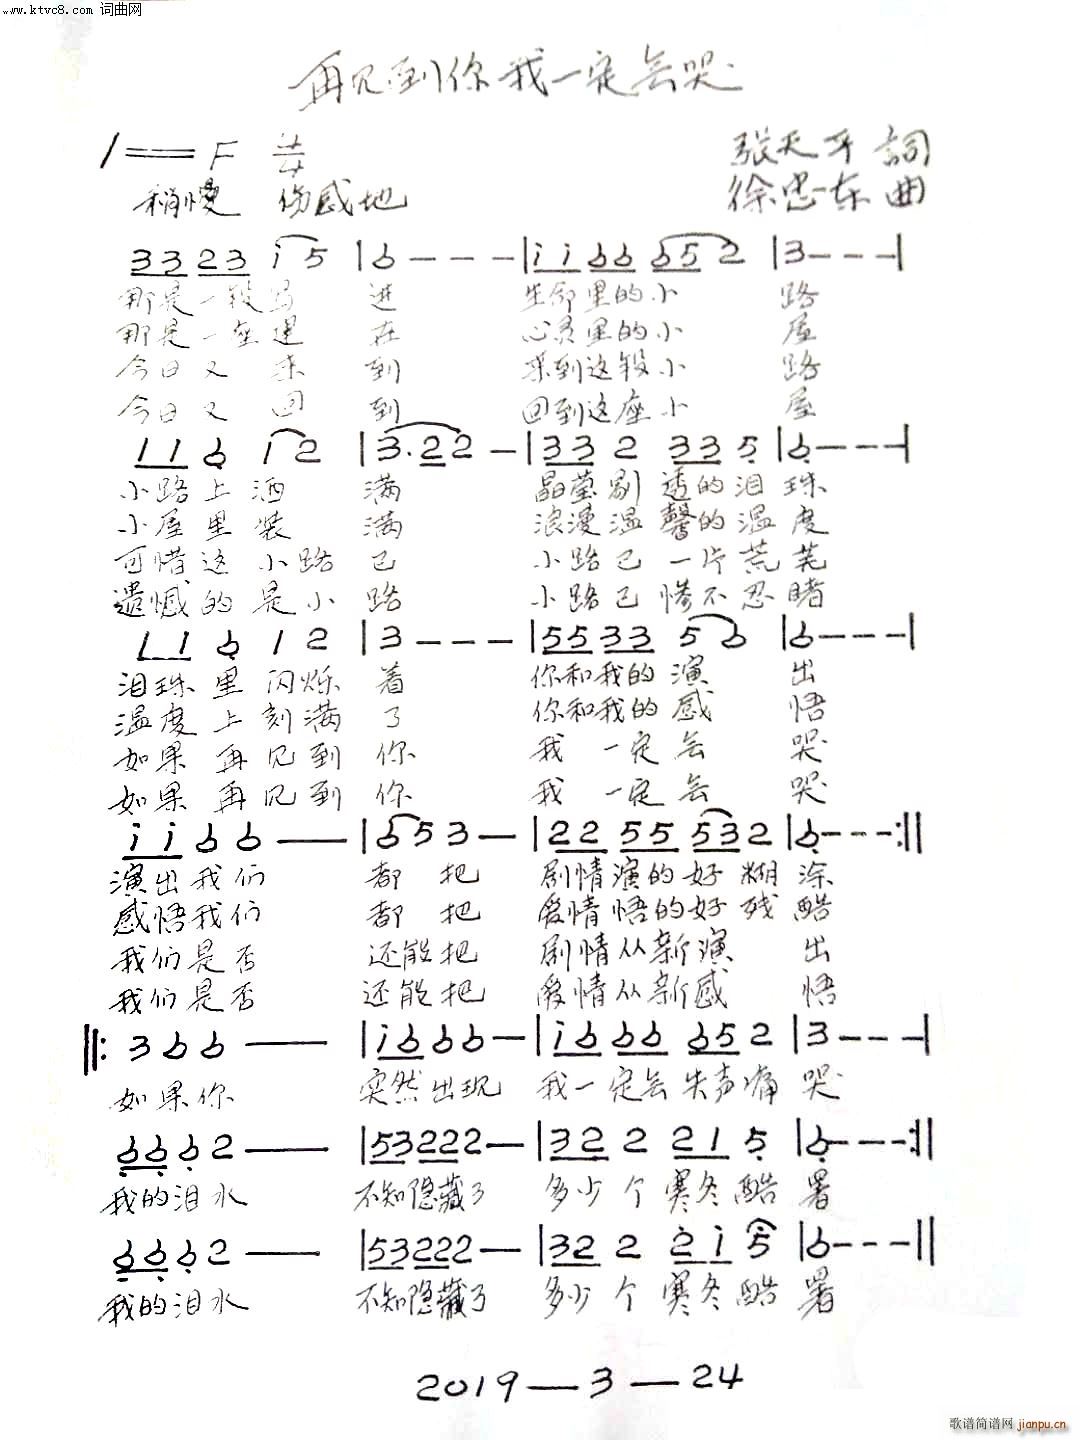 www.ktvc8.com 词曲网
再见到你我一定会哭
1=F 4/4
张天平 詞
稍慢 伤感地
徐忠东 曲
33 23 i 5 | 6 - - - | i i 66 65 2 | 3 - - - |
那是一段写 进 生命里的小 路
那是一座建 在 心灵里的小 屋
今日又 来 到 来到这段小 路
今日又 回 到 回到这座小 屋
11 6 1 2 | 3.22 - | 33 2 33 5 | 6 - - - |
小路上洒 满 晶莹剔透的泪珠
小屋里装 满 浪漫温馨的温度
可惜这小路已 小路已一片荒芜
遗憾的是小路 小路已惨不忍睹
11 6 1 2 | 3 - - - | 55 33 5 6 | 6 - - - |
泪珠里闪烁着 你和我的演 出
温度上刻满了 你和我的感 悟
如果再见到你 我一定会 哭
如果再见到你 我一定会 哭
i i 6 6 — | 6 5 3 - | 22 55 53 2 | 6 - - - :||
演出我们 都把 剧情演的好糊涂
感悟我们 都把 爱情悟的好残酷
我们是否 还能把 剧情从新演 出
我们是否 还能把 爱情从新感 悟
||: 3 6 6 — | i 6 6 6 - | i 6 66 65 2 | 3 - - - |
如果你 突然出现 我一定会失声痛哭
6 6 6 2 — | 53222 - | 32 2 21 5 | 6 - - - :||
我的泪水 不知隐藏了 多少个寒冬酷暑
6 6 6 2 — | 53222 - | 32 2 2 i 5 | 6 - - - ||
我的泪水 不知隐藏了 多少个寒冬酷暑
2019—3—24
歌谱简谱网 jianpu.cn